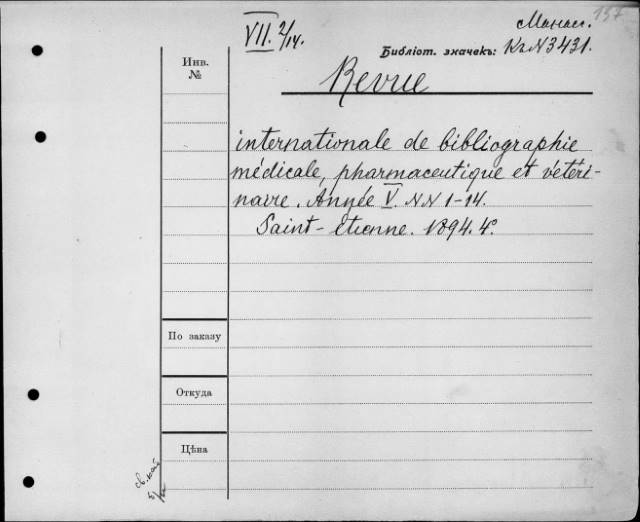 VII. 2/14.
137
Манас.
Библіот. значекъ: Кг N3431.
Инв.
№
Revue
internationale de bibliographie
médicale, pharmaceutique et vétéri-
naire. Année V. NN 1-14.
Saint-Etienne. 1894. 4º
По заказу
Откуда
Цѣна